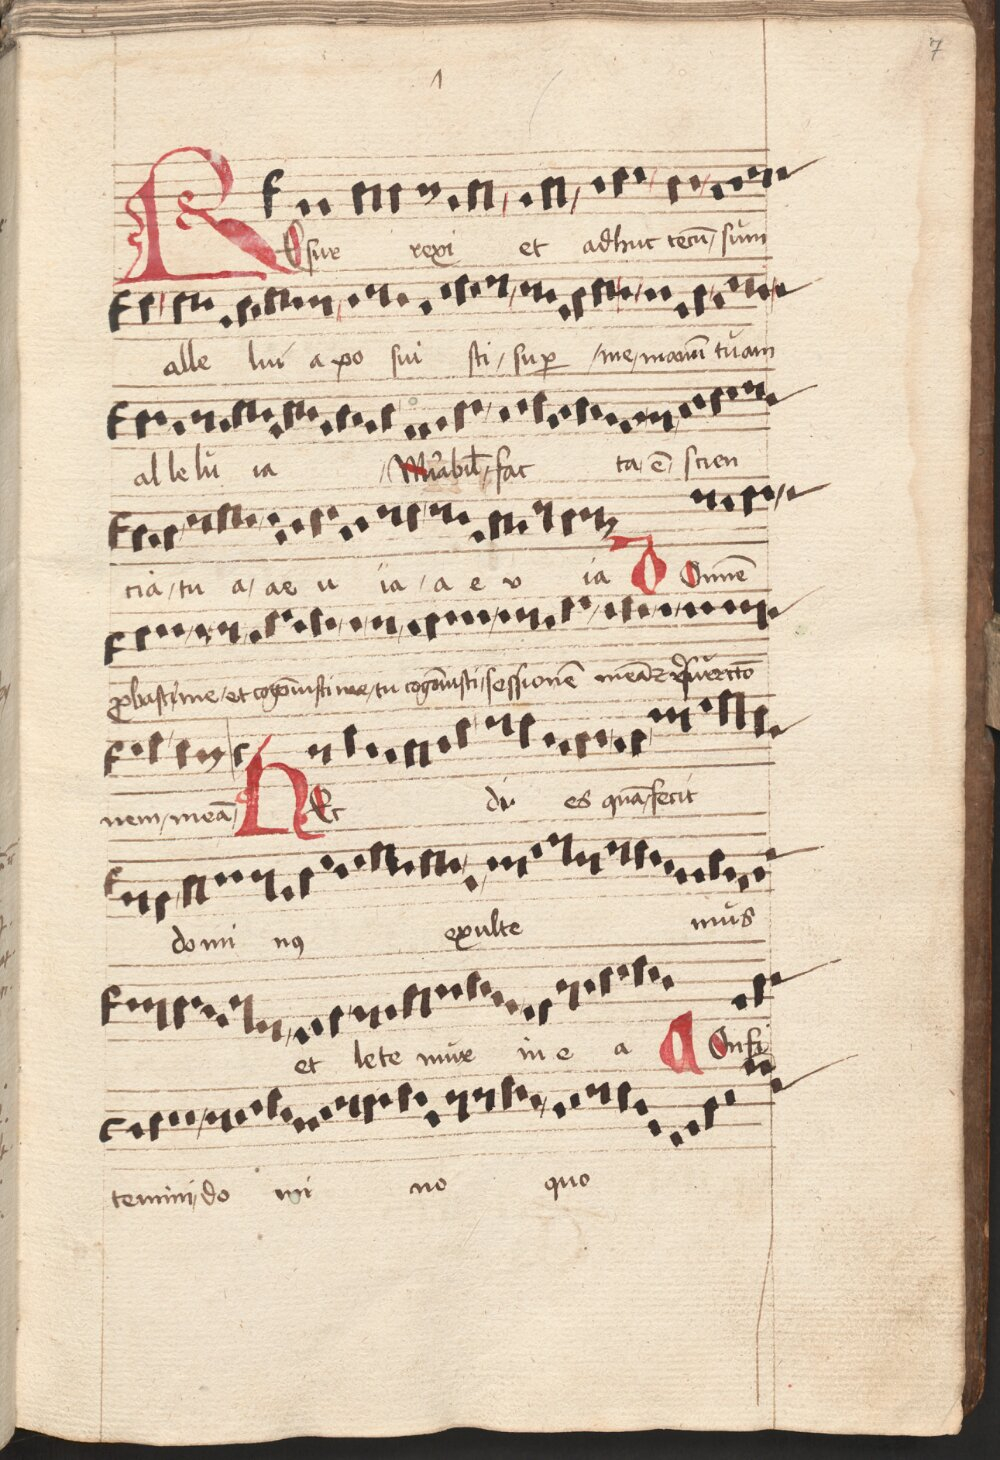 7
1
REsur rexi et adhuc tecū sum
alle lui a po sui sti sup me manū tuam
al le lu ia Mirabil fac ta ē scien
cia tu a ae u ia a e v ia D Omine
pbasti me et cogōuisti me tu cogōuisti sessionē meā
nem meā HEc di es quā fecit
do mi n9 exulte mus
et lete mur in e a COnfi
temini do mi no quo